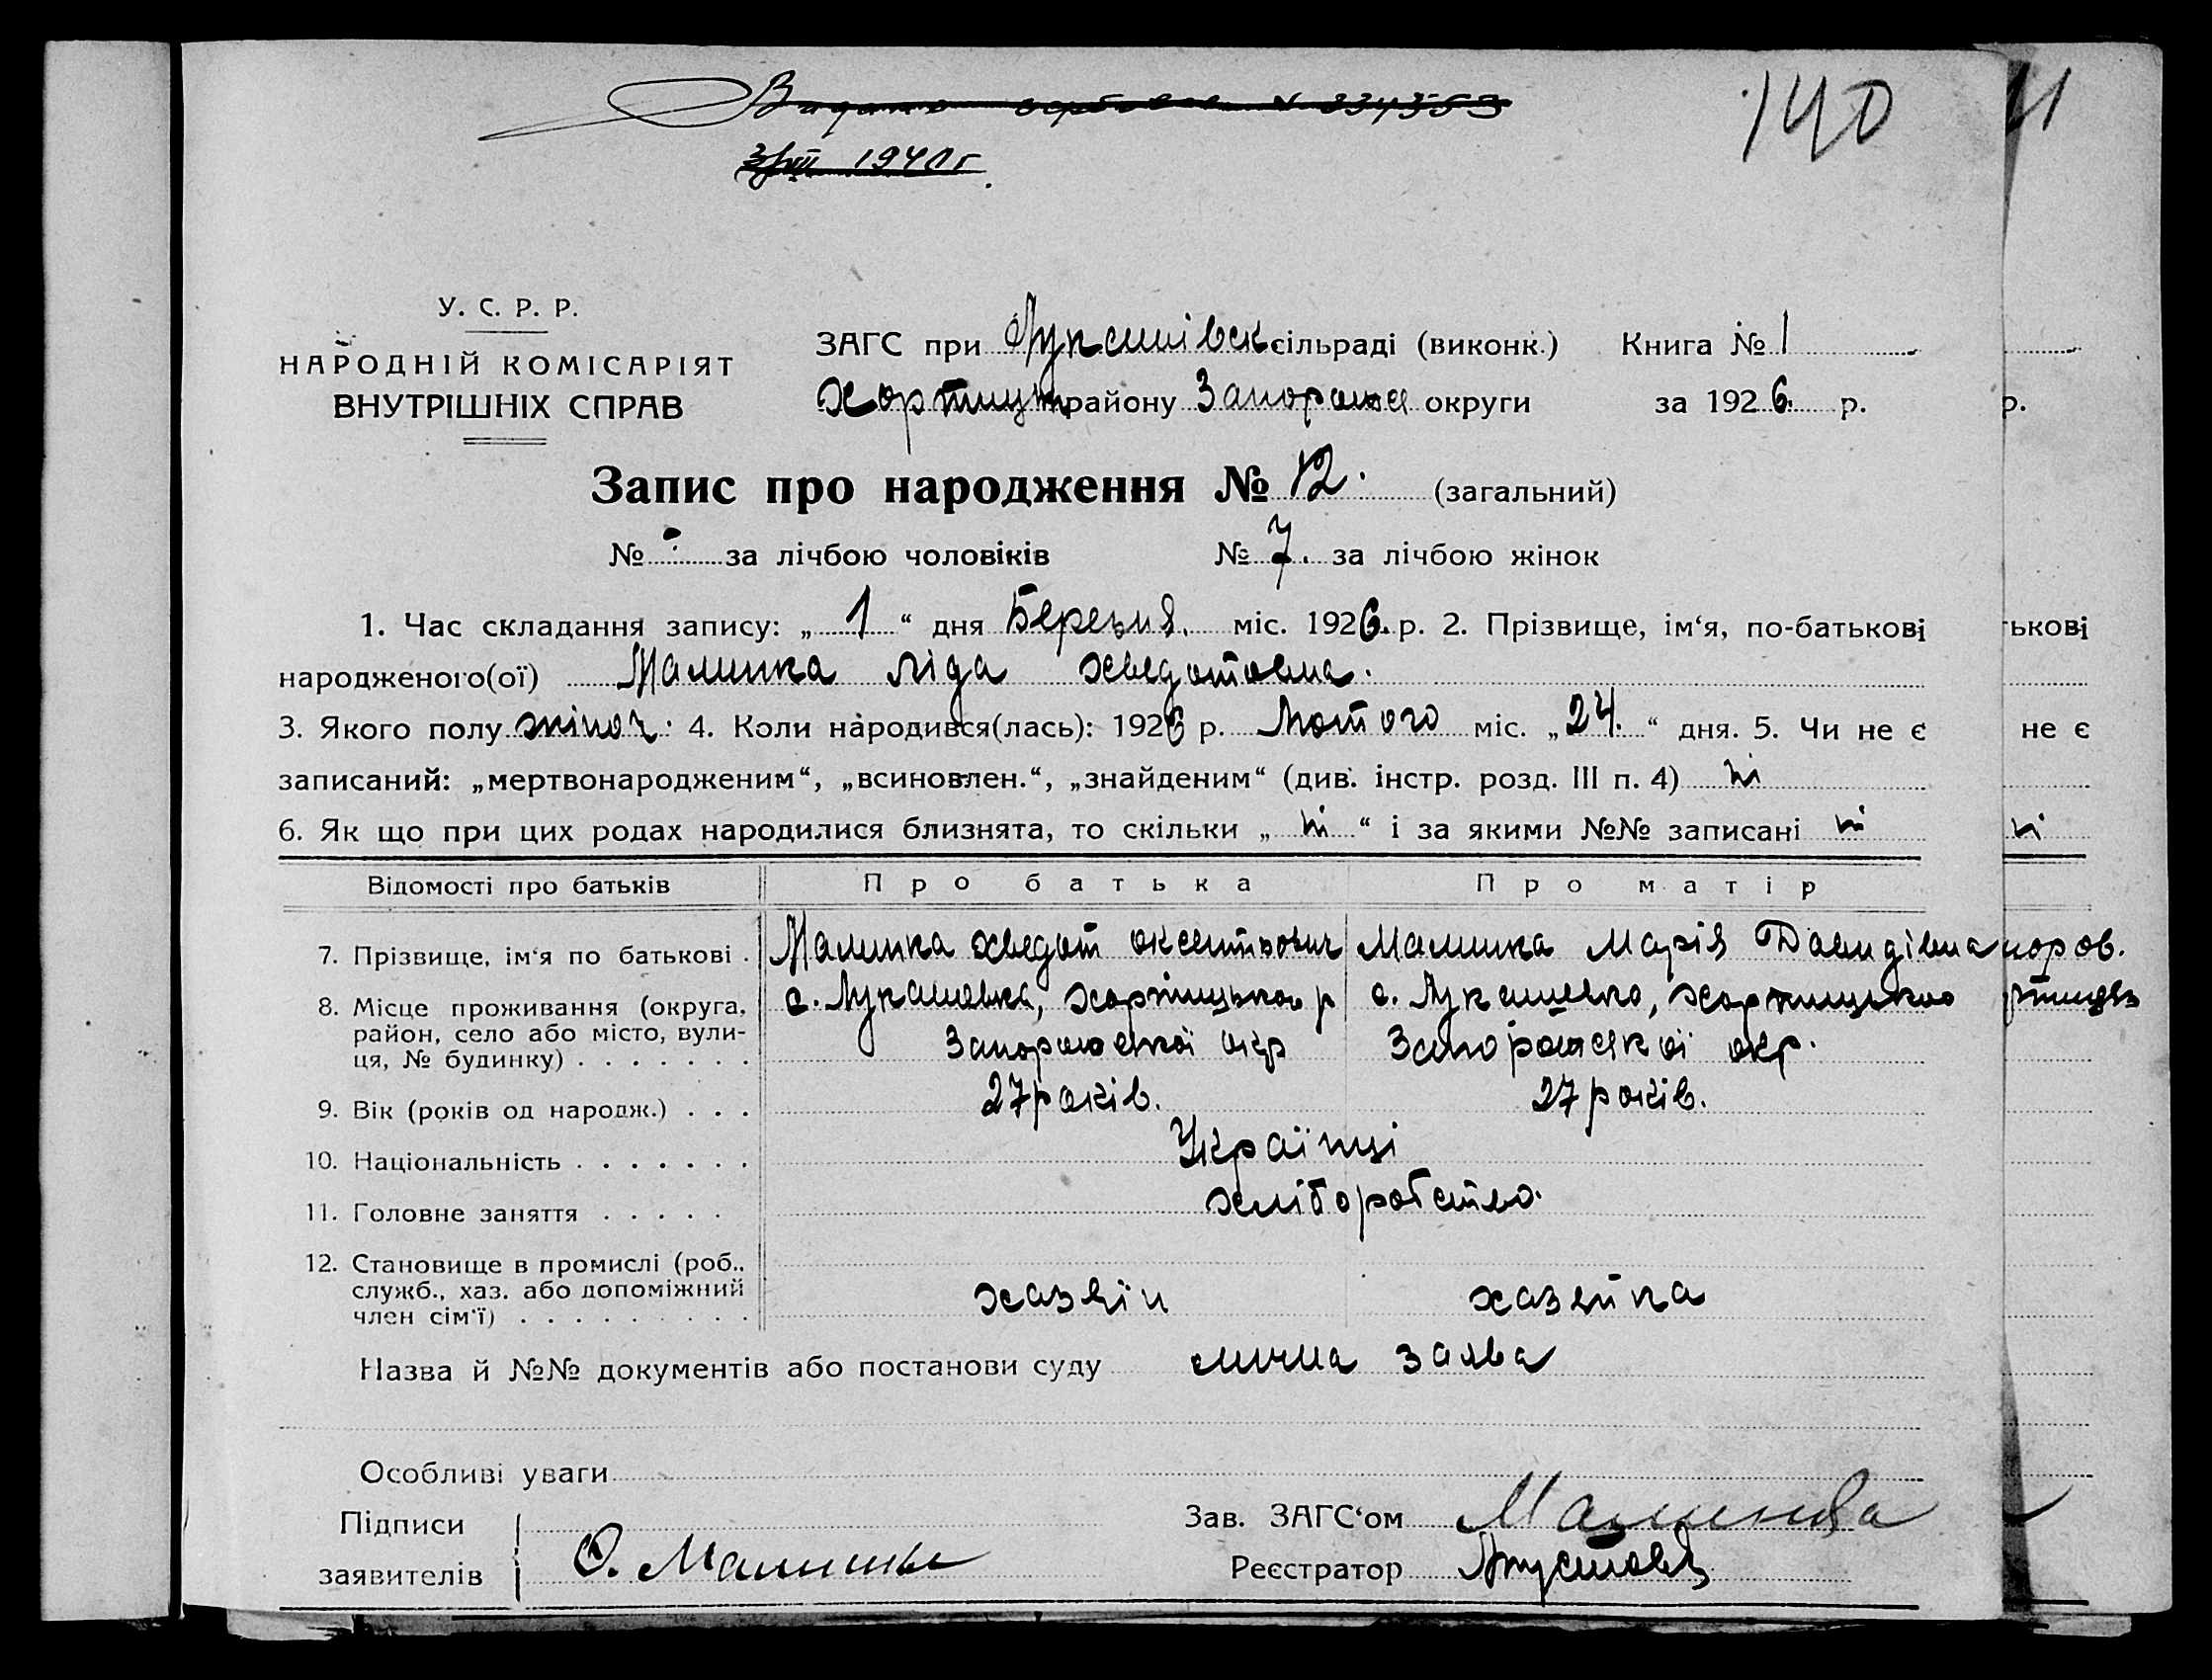 140
1940 г.
У. С. Р. Р.
НАРОДНІЙ КОМІСАРІЯТ
ВНУТРІШНІХ СПРАВ
ЗАГС при Лукашівськ сільраді (виконк.) Книга № 1
Хортицьк району Запорожся округи за 1926. р.
Запис про народження № 12. (загальний)
№ за лічбою чоловіків № 7. за лічбою жінок
1. Час складання запису: „ 1 “ дня Березня. міс. 1926. р. 2. Прізвище, ім‘я, по-батькові
народженого(ої) Малинка Ліда Хведотовна.
3. Якого полу жіноч. 4. Коли народився(лась): 1926 р. Лютого міс. „ 24. “ дня. 5. Чи не є
записаний: „мертвонародженим“, „всиновлен.“, „знайденим“ (див. інстр. розд. III п. 4) ні
6. Як що при цих родах народилися близнята, то скільки „ ні “ і за якими №№ записані ні
Відомості про батьків Про батька Про матір
7. Прізвище, ім‘я по батькові . Малинка Хведот Оксентьович Малинка Марія Давидівна
8. Місце проживання (округа, с. Лукашевка, Хортицького р с. Лукашевка, Хортицького
район, село або місто, вули-
ця, № будинку) . . . . . . . Запорожської окр Запорожської окр.
9. Вік (років од народж.) . . . 27 років. 27 років.
10. Національність . . . . . . . Українці
11. Головне заняття . . . . . Хліборобство.
12. Становище в промислі (роб.,
служб., хаз. або допоміжний
член сім‘ї) . . . . . . . . . хазяїн хазяйка
Назва й №№ документів або постанови суду лична заява
Особливі уваги
Підписи
заявителів О. Малинка
Зав. ЗАГС‘ом
Реєстратор